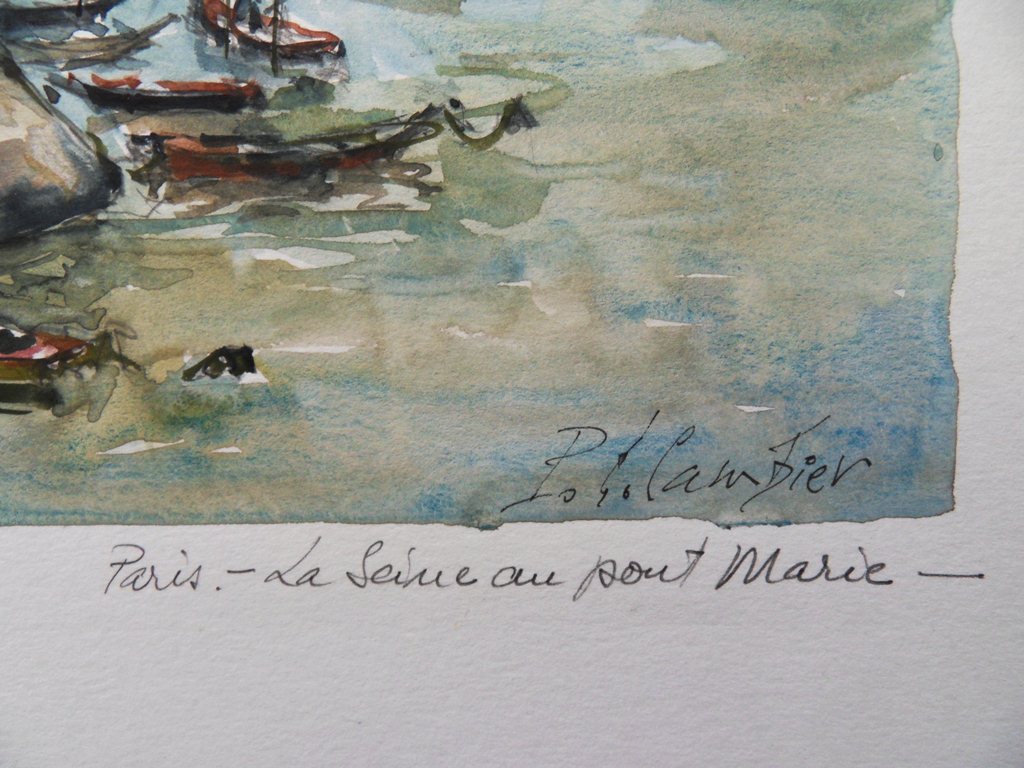 Cambier
Paris. - La Seine au pont Marie -